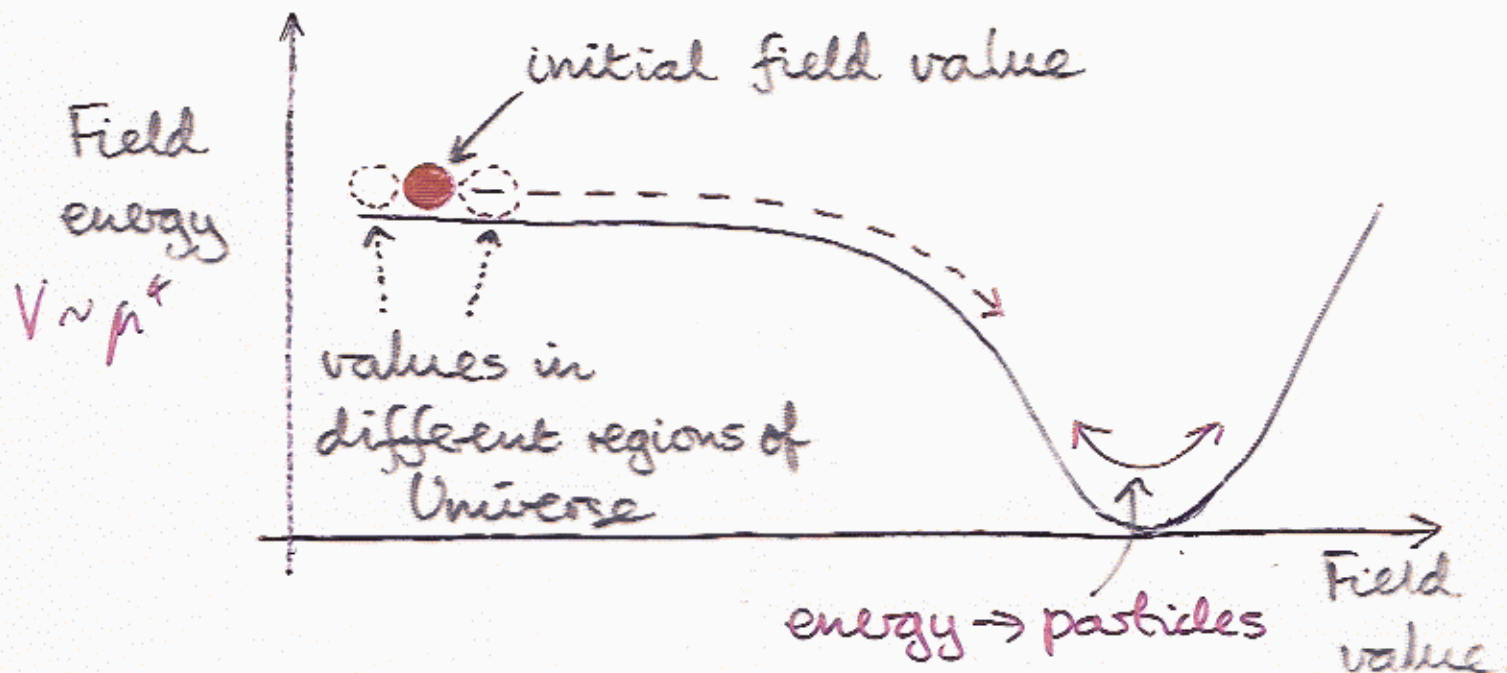 initial field value
Field
energy
V ~ μ⁴
values in
different regions of
Universe
energy → particles
Field
value